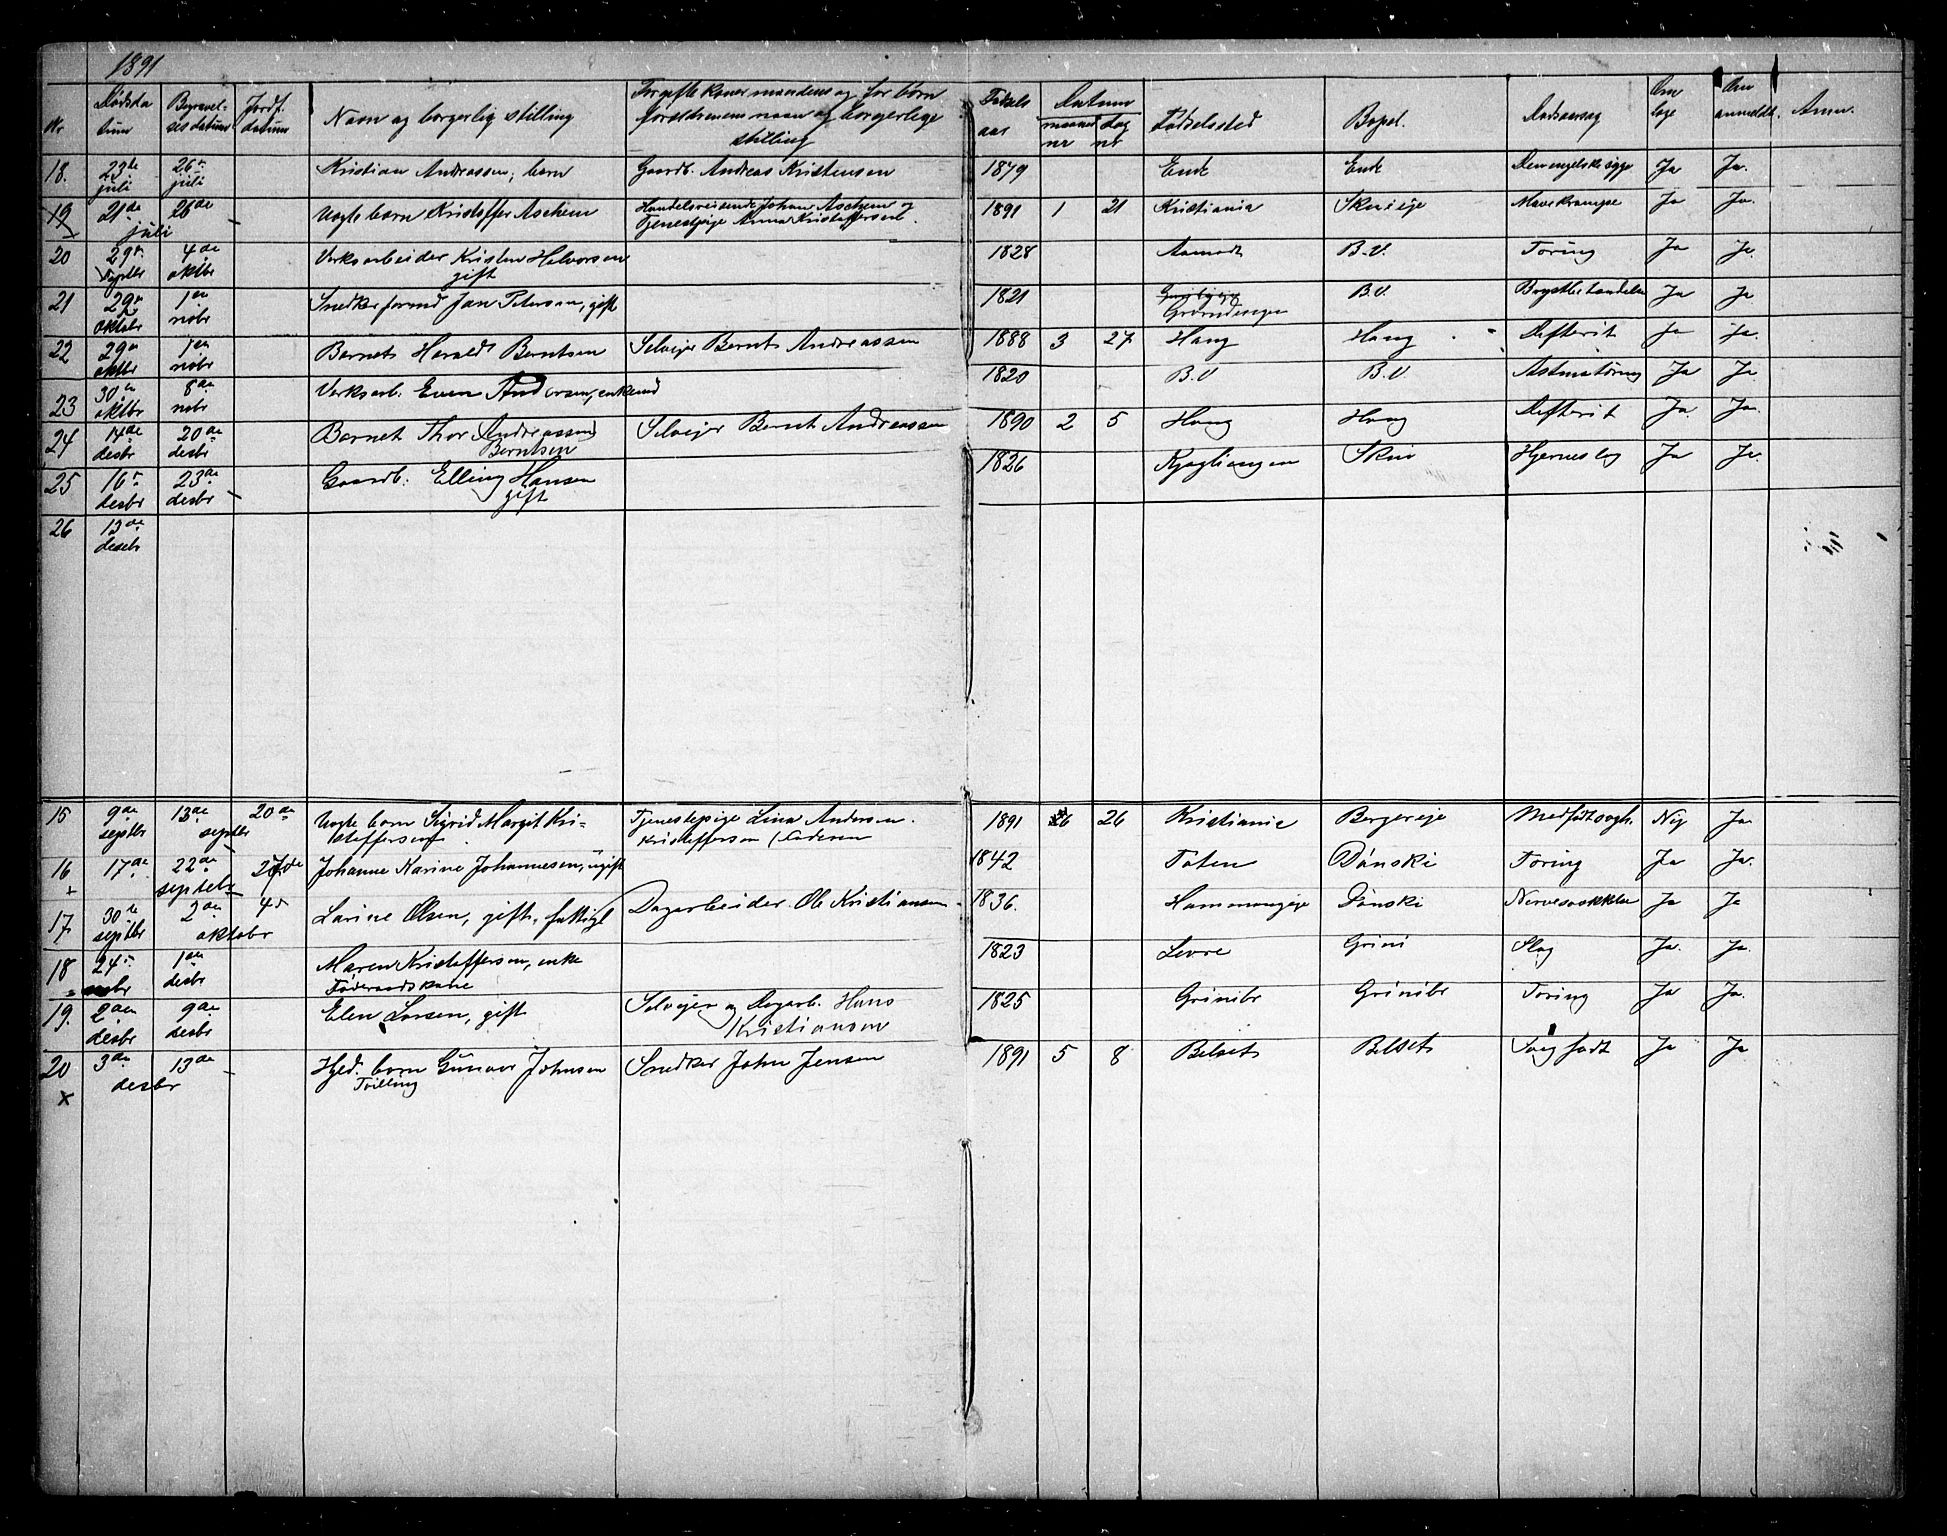 1891
Nr Dødsda tum Begravel- ses datum Jordf. datum Navn og borgerlig stilling For gifte koner mandens og for børn forældrenes navn og borgerlige stilling Fødsels aar Datum maaned nr dag nr Fødselssted Bopæl. Dødsaarsag Om læge Om anmeldt. Anm.
18. 23de juli 26de juli Kristian Andreassen, barn Gaardb. Andreas Kristensen 1879 Ende Ende Den engelske syge Ja Ja.
19 21de 26de juli Uægte barn Kristoffer Aschem Handelsreisende Johan Aschem og Tjenestpige Anna Kristoffersen. 1891 1 21 Kristiania Skuieje Mavekrampe Ja Ja.
20 29de septbr 4de oktbr Verksarbeider Kristen Halvorsen gift 1828 Aamodt B.V. Tæring Ja Ja.
21 29de oktobr 1ste nobr Snedker formd Jan Petersen, gift 1821 Grændsen B.V. Brystbetændelse Ja Ja
22 29de oktbr 1ste nobr Barnet Harald Berntsen Selvejer Bernt Andreassen 1888 3 27 Haug Haug Difterit Ja Ja.
23 30te oktbr 8de nobr Verksarb. Even Andersen, enkemd 1820 B.V B.V. Astmatæring Ja Ja
24 14de desbr 20de desbr Barnet Thor Andreassen Berntsen Selvejer Bernt Andreassen 1890 2 5 Haug Haug Difterit Ja. Ja.
25 16de desbr 23de desbr Gaardb. Elling Hansen gift 1826 Kjaglinzen Skui Hjerneslag Ja Ja.
26 13de desebr
15 9de septbr 13de septbr 20de Uægte barn Sigrid Margit Kri- stoffersen Tjenestepige Lina Andersen. Kristoffersen 1891 6 26 Kristiania Bergereje Medfødt svagh. Nej Ja
16 17de 22de septebr 27de Johanne Karine Johannesen, ugift 1842 Toten Dønski Tæring Ja Ja.
17. 30te septbr 2den oktober 4de Larine Olsen, gift, fattigl Dagarbeider Ole Kristiansen 1836. Hammereje Dønski Nervesvækkelse Ja Ja
18 24de nobr 1ste desbr Maren Kristoffersen, enke Føderaadskone 1823 Levre Grini Slag Ja. Ja.
19. 2den desbr 9de desbr Elen Larsen, gift Selvejer og Dagarb. Hans Kristiansen 1825 Grinibr Grinibr Tæring Ja Ja.
20 3de 13de desbr Hjd. barn Gunvor Johnsen Tvilling Snedker John Jensen 1891 5 8 Belset Belset Svagfødt Ja Ja
x